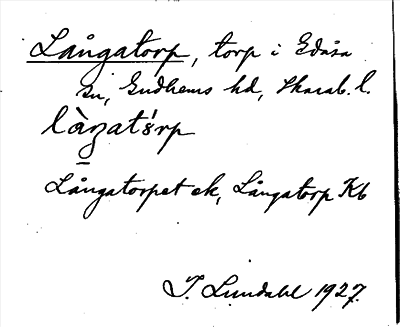 Långatorp, torp i Edåsa
sn, Gudhems hd, Skarab. l.
làŋatórp
Långatorpet ek, Långatorp Kb
I. Lundahl 1927.